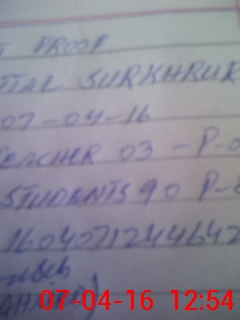 T PROOF
TTAL SURKHRUR
07-04-16
TEACHER 03 - P-0
STUDENTS 90 P-8
1604071244642
07-04-16 12:54